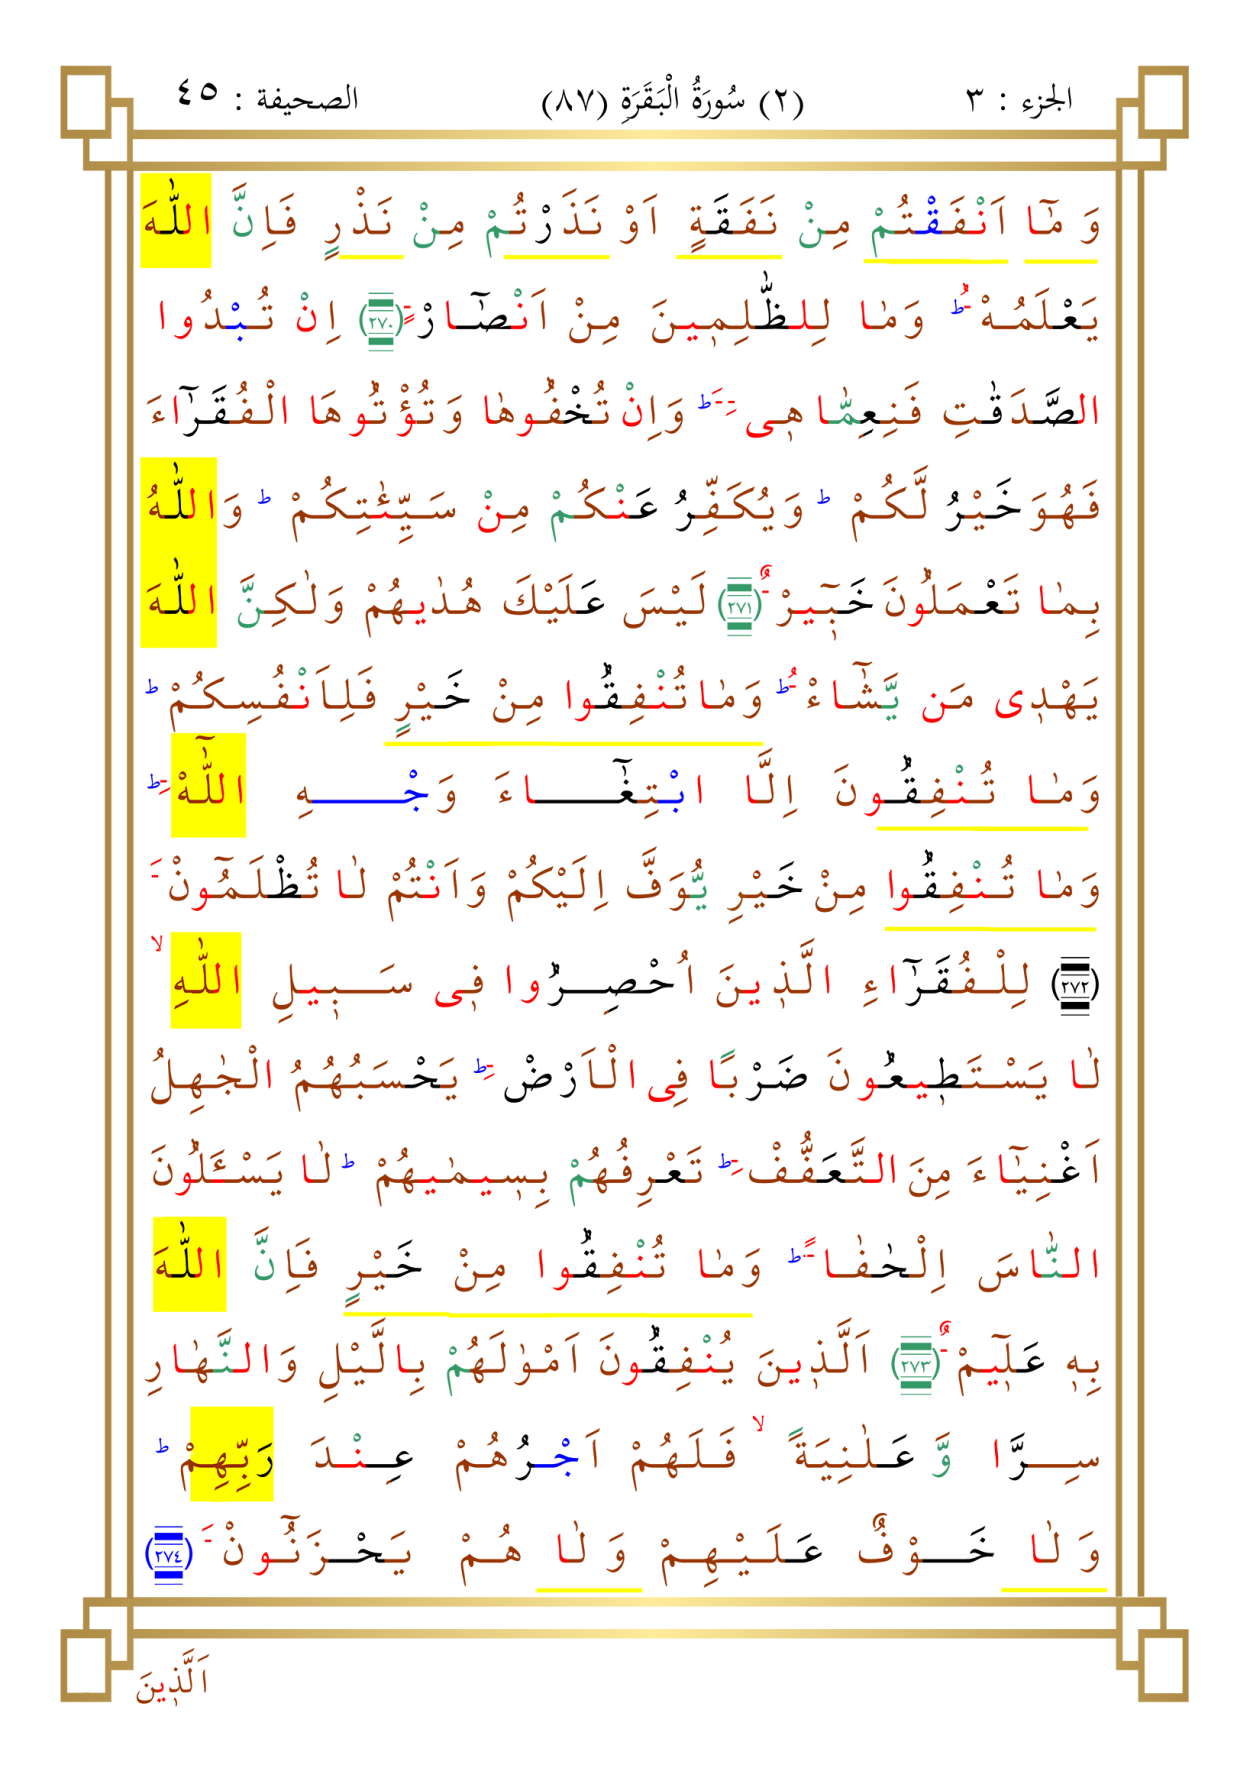 الجزء : ٣ (٢) سُورَةُ الْبَقَرَةِ (٨٧) الصحيفة : ٤٥
وَ مَٓا اَنْفَقْتُمْ مِنْ نَفَقَةٍ اَوْ نَذَرْتُمْ مِنْ نَذْرٍ فَاِنَّ اللّٰهَ
يَعْلَمُهْ ۘط وَمٰا لِلظّٰلِمٖينَ مِنْ اَنْصَٓارْ ﴿٢٧٠﴾ اِنْ تُبْدُوا
الصَّدَقٰتِ فَنِعِمّٰا هِیَ ط وَاِنْ تُخْفُوهٰا وَتُؤْتُوهَا الْفُقَرَٓاءَ
فَهُوَ خَيْرُ لَّكُمْ ط وَيُكَفِّرُ عَنْكُمْ مِنْ سَيِّئٰتِكُمْ ط وَاللّٰهُ
بِمٰا تَعْمَلُونَ خَبٖٓيرْ ﴿٢٧١﴾ لَيْسَ عَلَيْكَ هُدٰيهُمْ وَلٰكِنَّ اللّٰهَ
يَهْدٖى مَن يَّشَٓاءْ ط وَمٰا تُنْفِقُوا مِنْ خَيْرٍ فَلِاَنْفُسِكُمْ ط
وَمٰا تُنْفِقُونَ اِلَّا ابْتِغَٓاءَ وَجْهِ اللّٰهْ ط
وَمٰا تُنْفِقُوا مِنْ خَيْرِ يُّوَفَّ اِلَيْكُمْ وَاَنْتُمْ لٰا تُظْلَمُٓونْ
﴿٢٧٢﴾ لِلْفُقَرَٓاءِ الَّذٖينَ اُحْصِرُوا فٖى سَبٖيلِ اللّٰهِ لا
لٰا يَسْتَطٖيعُونَ ضَرْبًا فِى الْاَرْضْ ط يَحْسَبُهُمُ الْجٰهِلُ
اَغْنِيَٓاءَ مِنَ التَّعَفُّفْ ط تَعْرِفُهُمْ بِسٖيمٰيهُمْ ط لٰا يَسْئَلُونَ
النّٰاسَ اِلْحٰفٰا ط وَمٰا تُنْفِقُوا مِنْ خَيْرٍ فَاِنَّ اللّٰهَ
بِهٖ عَلٖٓيمْ ﴿٢٧٣﴾ اَلَّذٖينَ يُنْفِقُونَ اَمْوٰلَهُمْ بِالَّيْلِ وَالنَّهٰارِ
سِرَّا وَّ عَلٰنِيَةً لا فَلَهُمْ اَجْرُهُمْ عِنْدَ رَبِّهِمْ ط
وَ لٰا خَوْفٌ عَلَيْهِمْ وَ لٰا هُمْ يَحْزَنُٓونْ ﴿٢٧٤﴾
اَلَّذٖينَ